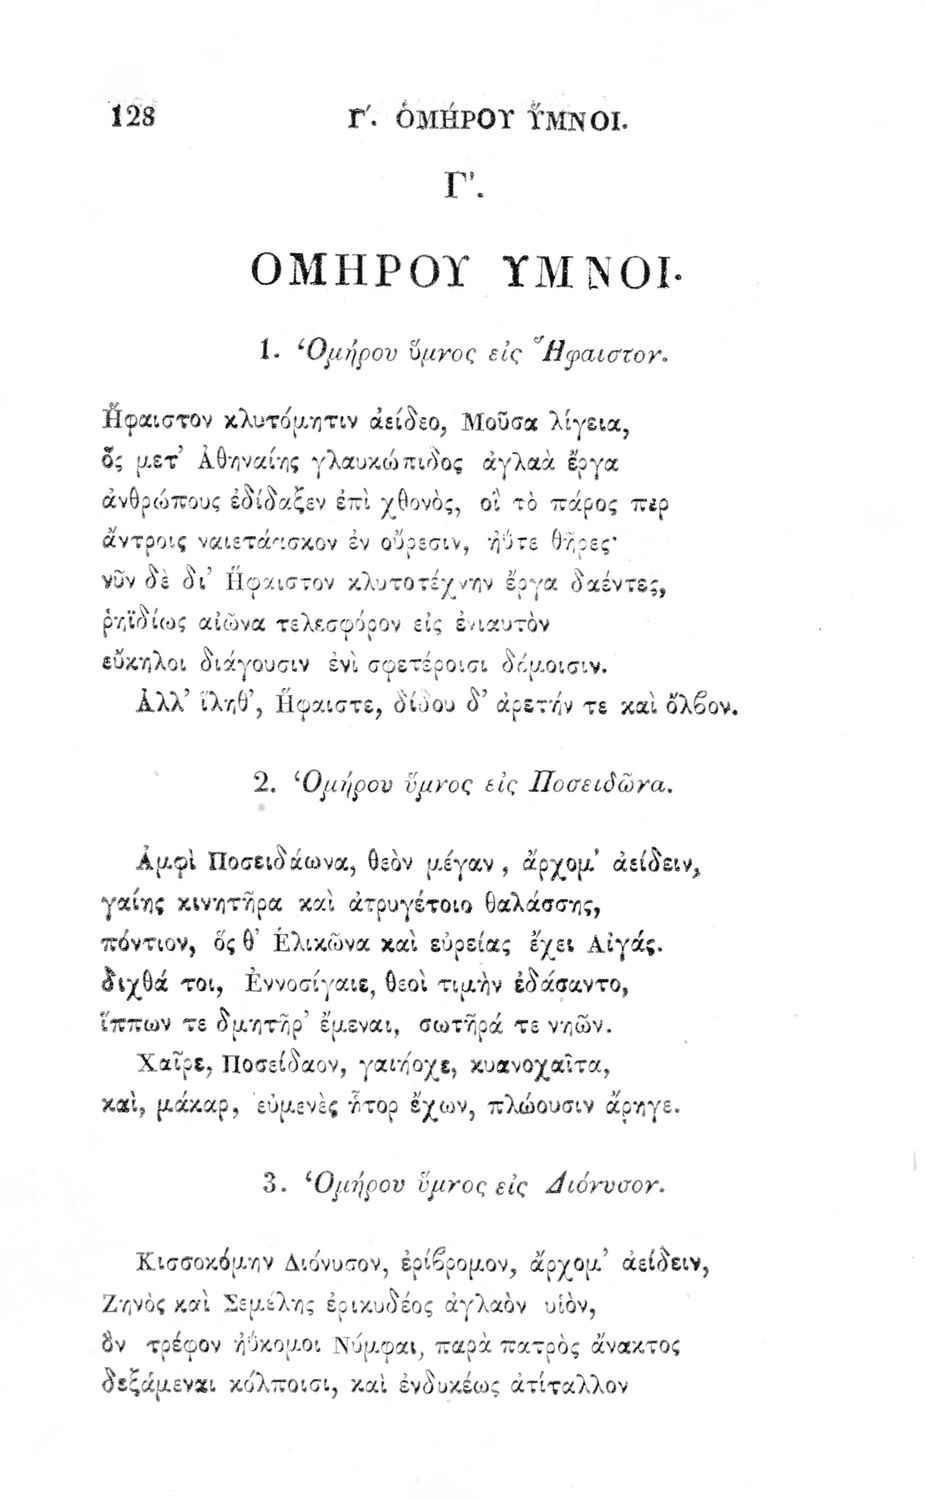 128
Γ'. ὉΜΉΡΟΥ ὝΜΝΟΙ.
Γ'.
ΟΜΗΡΟΥ ΥΜΝΟΙ.
1. Ὁμήρου ὕμνος εἰς Ἥφαιστον.
Ἥφαιστον κλυτόμητιν ἀείδεο, Μοῦσα λίγεια,
ὃς μετ' Ἀθηναίης γλαυκώπιδος ἀγλαὰ ἔργα
ἀνθρώπους ἐδίδαξεν ἐπὶ χθονὸς, οἳ τὸ πάρος περ
ἄντροις ναιετάασκον ἐν οὔρεσιν, ἠΰτε θῆρες·
νῦν δὲ δι' Ἥφαιστον κλυτοτέχνην ἔργα δαέντες,
ῥηϊδίως αἰῶνα τελεσφόρον εἰς ἐνιαυτὸν
εὔκηλοι διάγουσιν ἐνὶ σφετέροισι δόμοισιν.
Ἀλλ' ἵληθ', Ἥφαιστε, δίδου δ' ἀρετήν τε καὶ ὄλϐον.
2. Ὁμήρου ὕμνος εἰς Ποσειδῶνα.
Ἀμφὶ Ποσειδάωνα, θεὸν μέγαν, ἄρχομ' ἀείδειν,
γαίης κινητῆρα καὶ ἀτρυγέτοιο θαλάσσης,
πόντιον, ὅς θ' Ἑλικῶνα καὶ εὐρείας ἔχει Αἰγάς.
διχθά τοι, Ἐννοσίγαιε, θεοὶ τιμὴν ἐδάσαντο,
ἵππων τε δμητῆρ' ἔμεναι, σωτῆρά τε νηῶν.
Χαῖρε, Ποσείδαον, γαιήοχε, κυανοχαῖτα,
καὶ, μάκαρ, εὐμενὲς ἦτορ ἔχων, πλώουσιν ἄρηγε.
3. Ὁμήρου ὕμνος εἰς Διόνυσον.
Κισσοκόμην Διόνυσον, ἐρίϐρομον, ἄρχομ' ἀείδειν,
Ζηνὸς καὶ Σεμέλης ἐρικυδέος ἀγλαὸν υἱὸν,
ὃν τρέφον ἠΰκομοι Νύμφαι, παρὰ πατρὸς ἄνακτος
δεξάμεναι κόλποισι, καὶ ἐνδυκέως ἀτίταλλον